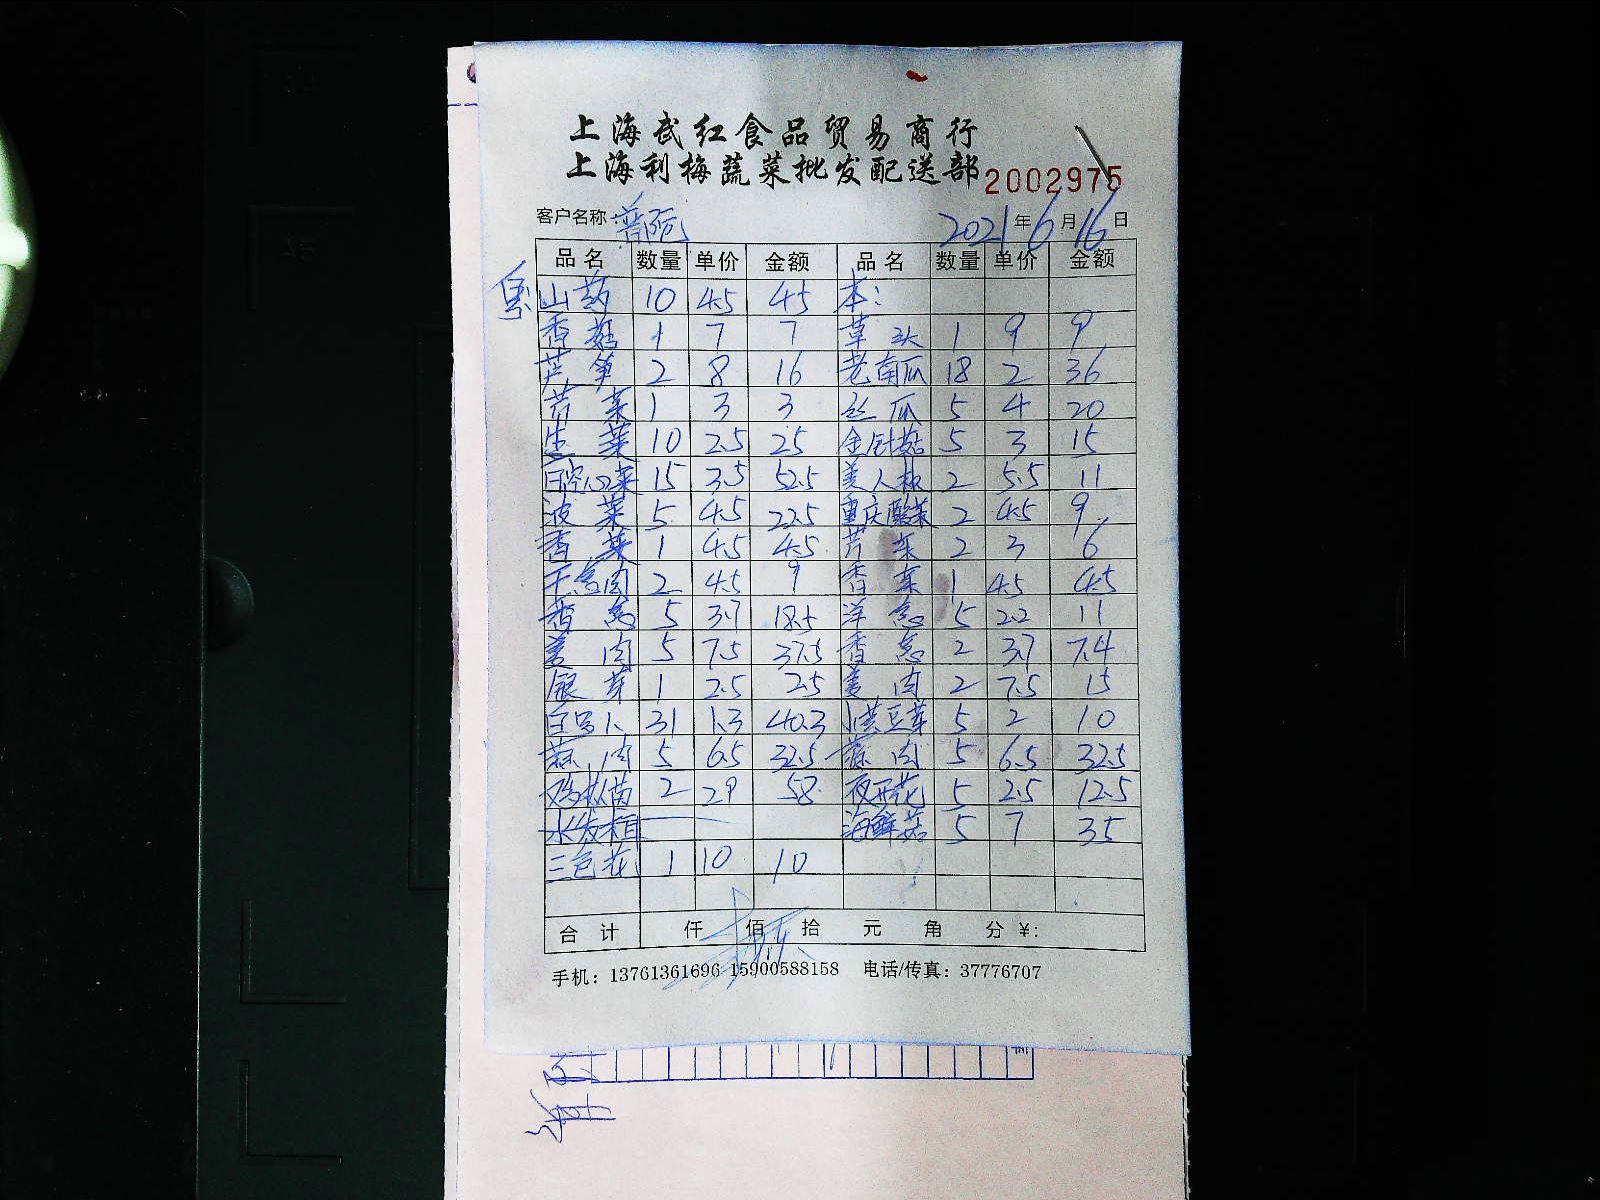 上海武红食品贸易商行
上海利梅蔬菜批发配送部 2002975
客户名称: 普陀 2021年6月16日
品名 数量 单价 金额 品名 数量 单价 金额
山药 10 4.5 45 本:
香菇 1 7 7 草头 1 9 9
芦笋 2 8 16 老南瓜 18 2 36
芹菜 1 3 3 丝瓜 5 4 20
生菜 10 2.5 25 金针菇 5 3 15
白空心菜 15 3.5 52.5 美人椒 2 5.5 11
波菜 5 4.5 22.5 重庆酸菜 2 4.5 9
香菜 1 4.5 4.5 芹菜 2 3 6
干葱肉 2 4.5 9 香菜 1 4.5 4.5
香葱 5 3.7 18.5 洋葱 5 2.2 11
姜肉 5 7.5 37.5 香葱 2 3.7 7.4
银芽 1 2.5 2.5 姜肉 2 7.5 15
31 1.3 40.3 黄豆芽 5 2 10
蒜肉 5 6.5 32.5 蒜肉 5 6.5 32.5
鸡枞菌 2 29 58 夜开花 5 2.5 12.5
水发木耳 海鲜菇 5 7 35
三色花 1 10 10
合计 仟 佰 拾 元 角 分 ¥:
手机: 13761361696 15900588158 电话/传真: 37776707